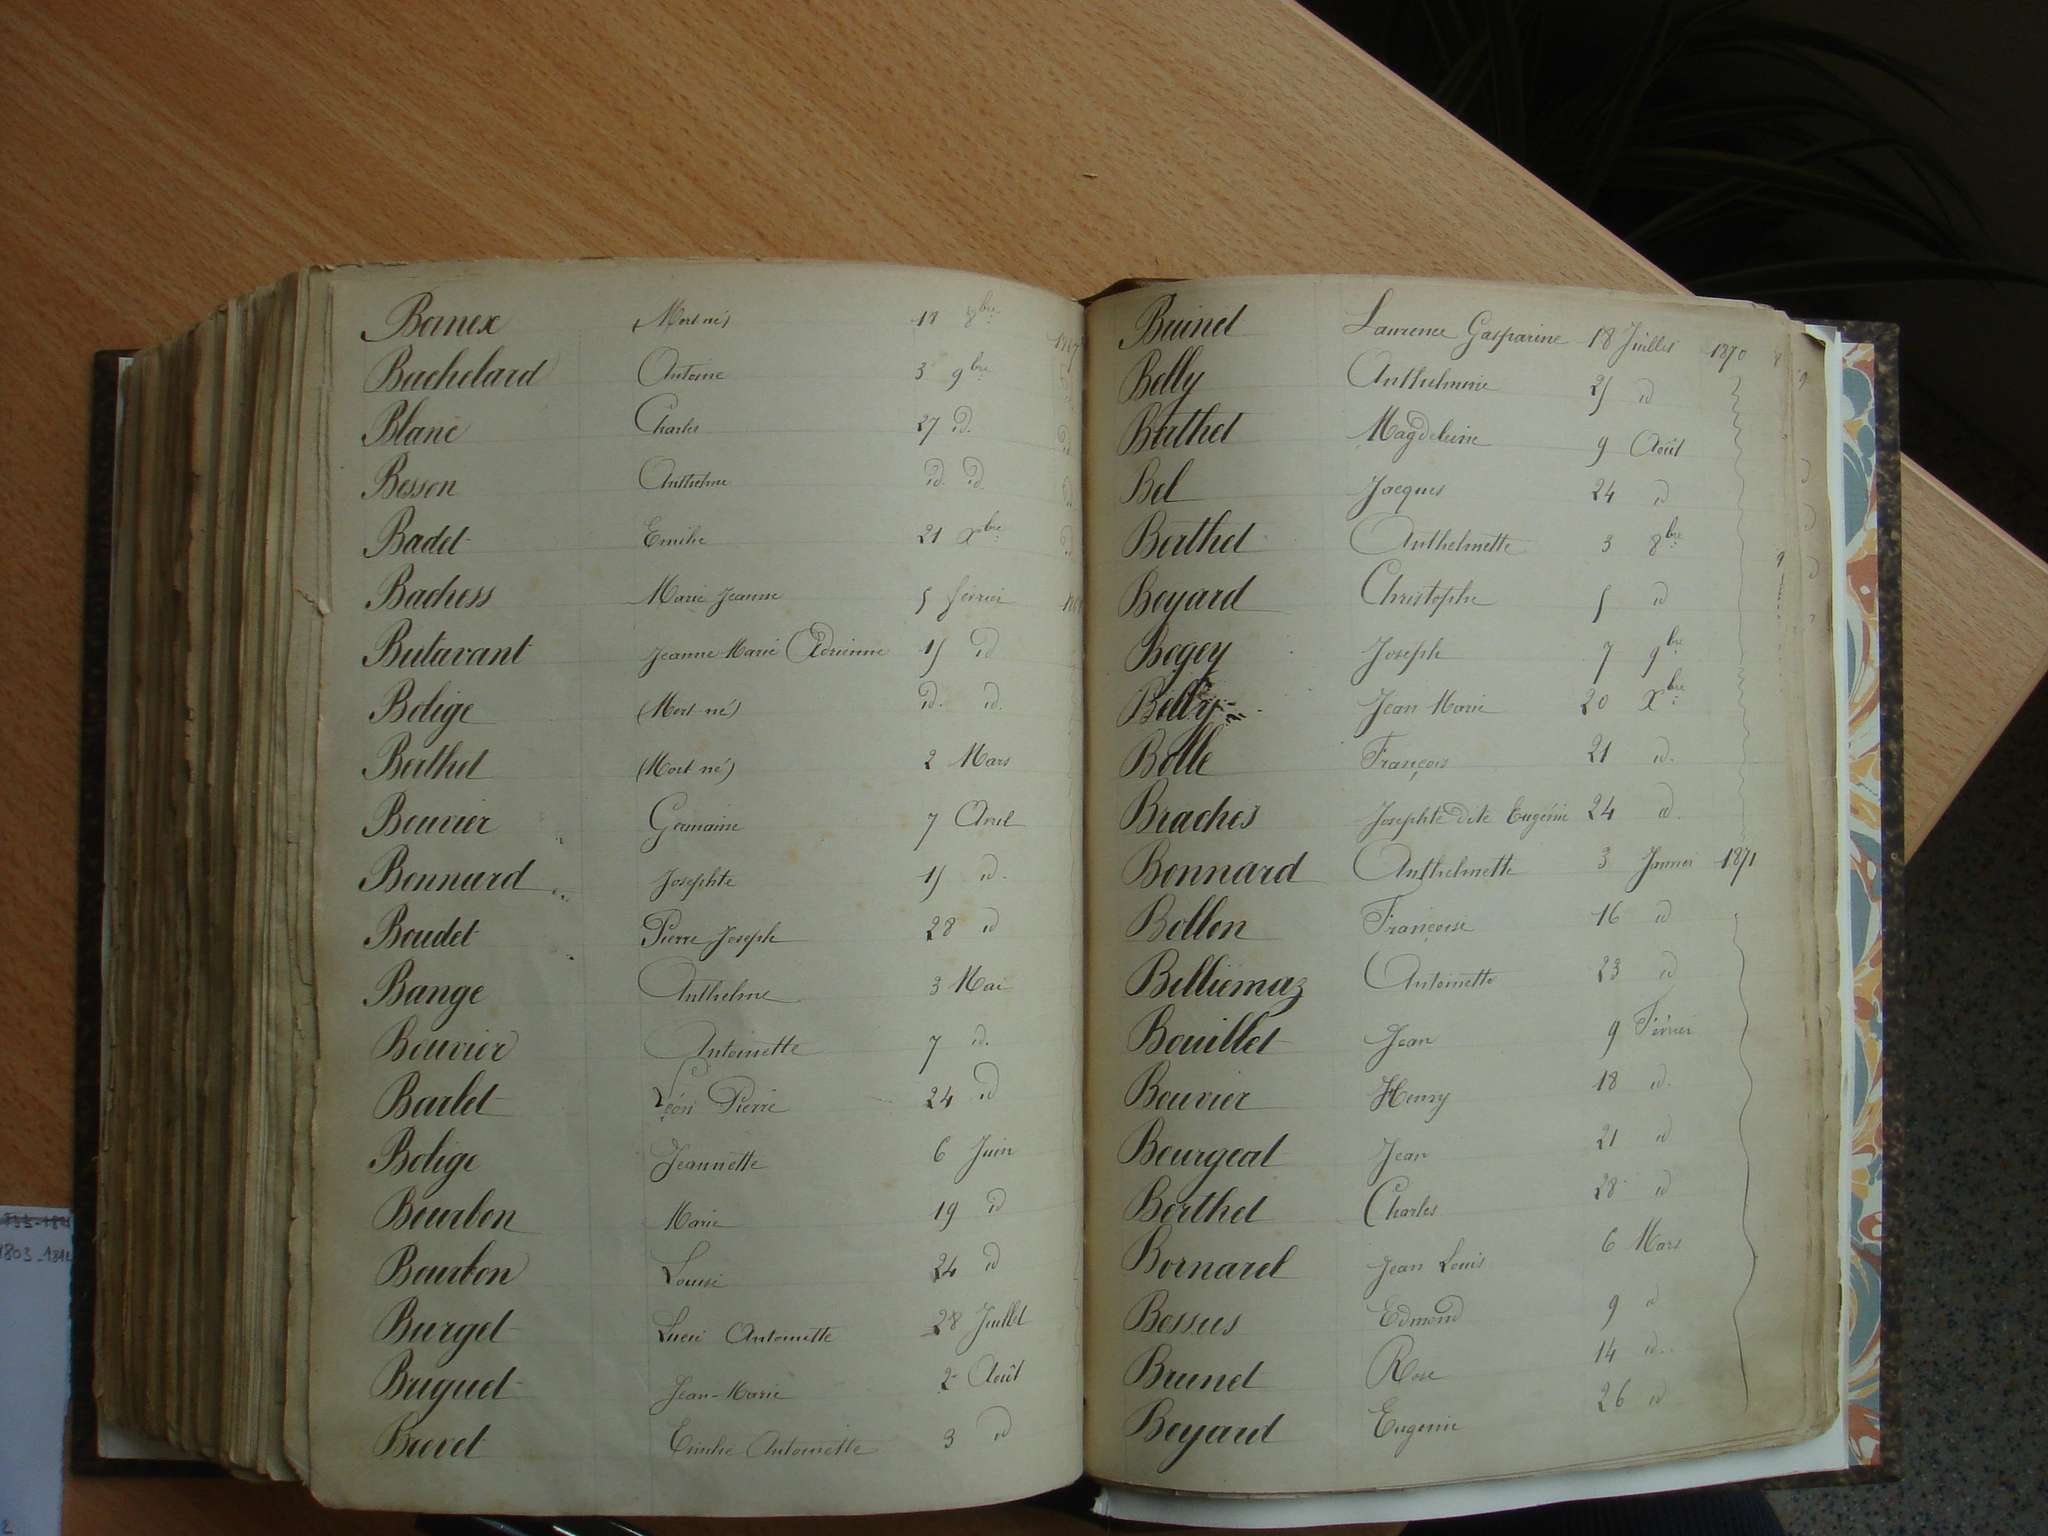 Banex (Mort-né) 18 8bre
Bachelard Antoine 3 9bre
Blanc Charles 27 id.
Besson Anthelme id. id.
Badet Emilie 21 Xbre
Bachess Marie Jeanne 5 février
Butavant Jeanne Marie Adrienne 15 id
Bolige (Mort-né) id. id.
Berthet (Mort né) 2 Mars
Bouvier Germaine 7 Avril
Bonnard Josephte 15 id.
Boudet Pierre Joseph 28 id
Bange Anthelme 3 Mai
Bouvier Antoinette 7 id.
Barlet Léon Pierre 24 id
Bolige Jeannette 6 Juin
Bourbon Marie 19 id
Bourbon Louise 24 id
Burget Lucie Antoinette 28 Juillet
Buguet Jean-Marie 2 Août
Brevet Emilie Antoinette 3 id
Buinet Laurence Gasparine 18 Juillet 1870
Belly Anthelmine 25 id
Berthet Magdeleine 9 Août
Bel Jacques 24 id
Berthet Anthelmette 3 8bre
Boyard Christophe 5 id
Bogey Joseph 7 9bre
Belly Jean Marie 20 Xbre
Bolle François 21 id.
Braches Josephte dite Eugénie 24 id.
Bonnard Anthelmette 3 Janvier 1871
Bollon Françoise 16 id
Belliemaz Antoinette 23 id
Bouillet Jean 9 Février
Bouvier Henry 18 id.
Bourgeat Jean 21 id
Berthet Charles 28 id
Bornarel Jean Louis 6 Mars
Bossus Edmond 9 id
Brunet Rose 14 id.
Boyard Eugénie 26 id
1803-1812